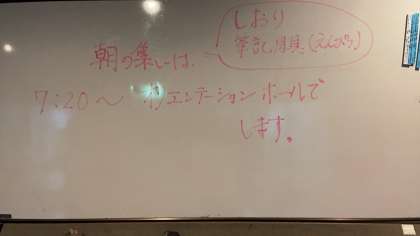 しおり
筆記用具(えんぴつ)
朝の集いは、
7:20〜 オリエンテーションホールで
します。